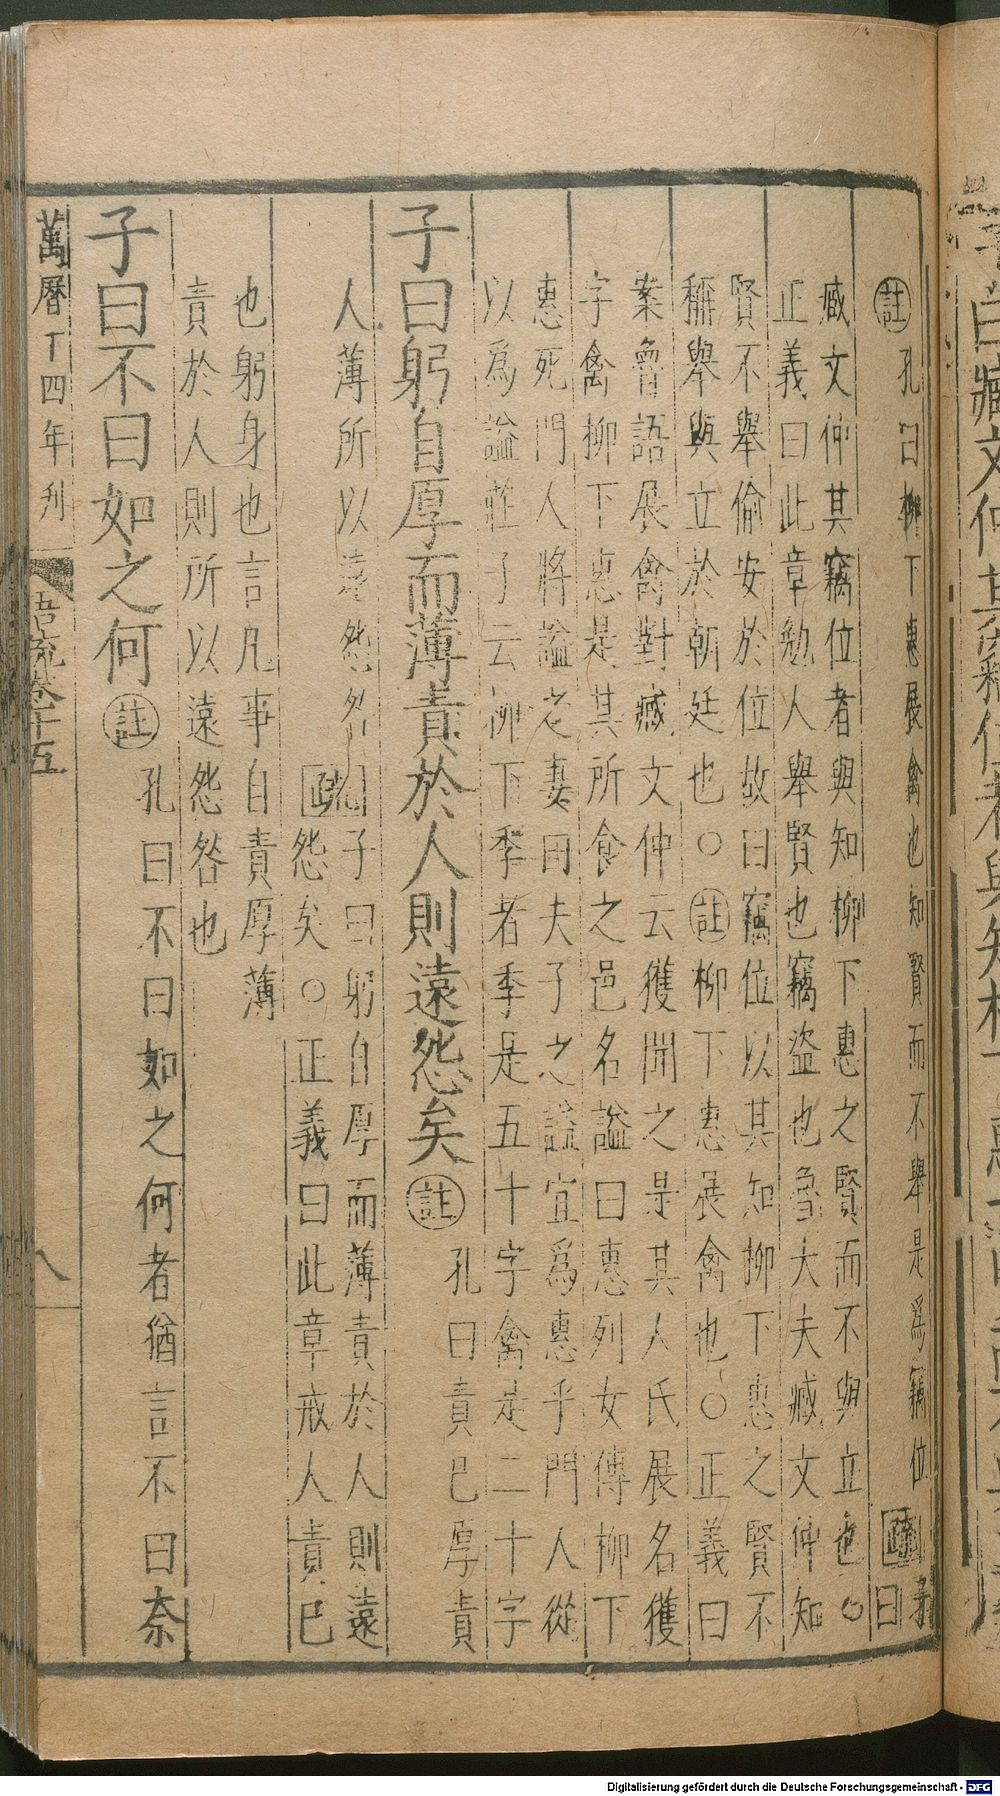 註 孔曰柳下惠展禽也知賢而不舉是爲竊位 疏 子曰
臧文仲其竊位者與知柳下惠之賢而不與立也○
正義曰此章勉人舉賢也竊盜也魯大夫臧文仲知
賢不舉偷安於位故曰竊位以其知柳下惠之賢不
稱舉與立於朝廷也○註柳下惠展禽也○正義曰
案魯語展禽對臧文仲云獲聞之是其人氏展名獲
字禽柳下惠是其所食之邑名謚曰惠列女傳柳下
惠死門人將謚之妻曰夫子之謚宜爲惠乎門人從
以爲謚莊子云柳下季者季是五十字禽是二十字
子曰躬自厚而薄責於人則遠怨矣 註 孔曰責己厚責
人薄所以遠怨咎 疏 子曰躬自厚而薄責於人則遠
怨矣○正義曰此章戒人責己
也躬身也言凡事自責厚薄
責於人則所以遠怨咎也
子曰不曰如之何 註 孔曰不曰如之何者猶言不曰奈
萬曆丁四年刋
語疏卷十五
八
子曰臧文仲其竊位者與知柳下惠
Digitalisierung gefördert durch die Deutsche Forschungsgemeinschaft - DFG